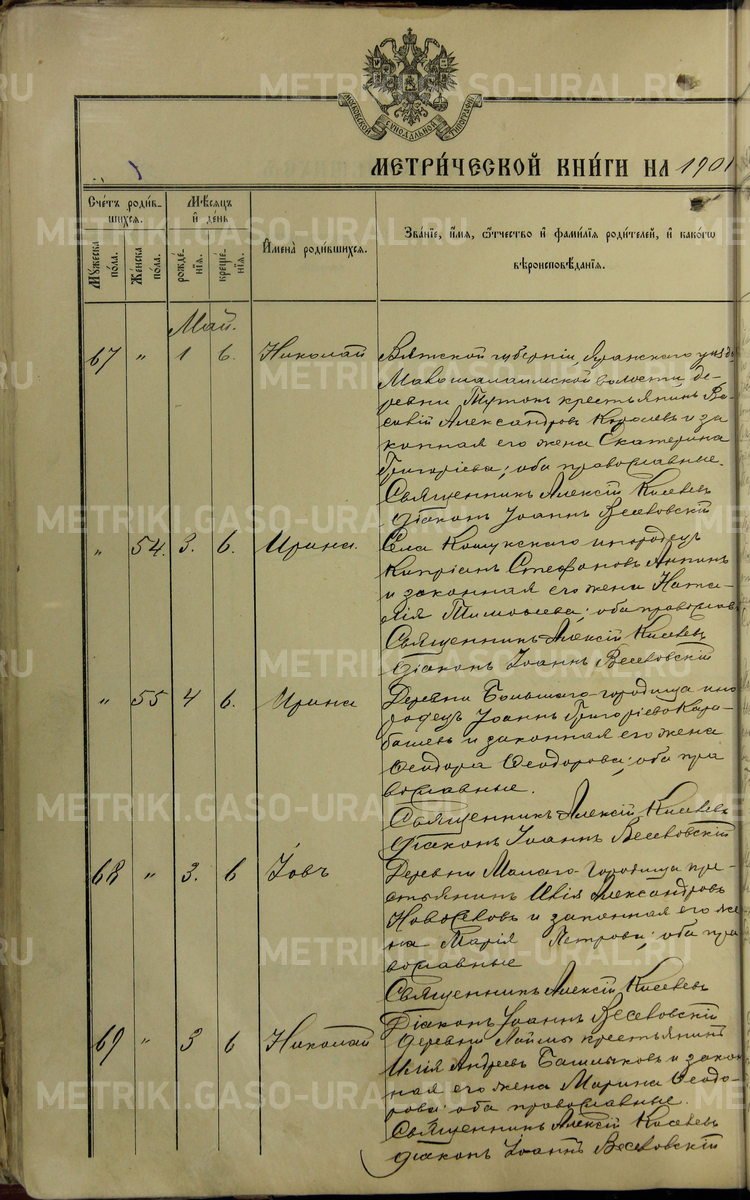 METRIKI.GASO-URAL.RU
МОСКОВСКОЙ СѴНОДАЛЬНОЙ ТИПОГРАФІИ
МЕТРИ́ЧЕСКОЙ КНИ́ГИ НА 1901
Сче́тъ роди́в-
шихся.
Мꙋжеска по́ла.
Же́нска по́ла.
Мѣ́сяцъ
и҆ де́нь
рожде́-
нїѧ.
креще́-
нїѧ.
И҆мена̀ роди́вшихся.
Зва́нїе, и҆́мѧ, ѻ҆́тчество и҆ фами́лїѧ роди́телей, и҆ како́гѡ
вѣроисповѣ́данїѧ.
Май.
67 " 1 6. Николай
Вятской губерніи, Яранскаго уѣзда
волости, де-
ревни крестьянинъ Ва-
силій Александровъ Королевъ и за
конная его жена Екатерина
Григоріева; оба православные.
Священникъ Алексій Киселевъ
Діаконъ Іоаннъ Веселовскій
" 54. 3. 6. Ирина.
Села Кошукскаго инородецъ
Кипріанъ Стефановъ
и законная его жена Ната-
лія Тимоѳеева; оба православ
Священникъ Алексій Киселевъ
Діаконъ Іоаннъ Веселовскій
" 55 4 6. Ирина
Деревни Большаго-городища ино
родецъ Іоаннъ Григоріевъ Кара-
башевъ и законная его жена
Ѳеодора Ѳеодорова; оба пра
вославные.
Священникъ Алексій Киселевъ
Діаконъ Іоаннъ Веселовскій
68 " 3. 6 Іовъ
Деревни Малаго-Городища кре-
стьянинъ Илія Александровъ
Новоселовъ и законная его же
на Марія Петрова; оба пра
вославные
Священникъ Алексій Киселевъ
Діаконъ Іоаннъ Веселовскій
69 " 3 6 Николай
Деревни крестьянинъ
Илія Андреевъ Башлыковъ и закон
ная его жена Марина Ѳеодо-
рова; оба православные.
Священникъ Алексій Киселевъ
Діаконъ Іоаннъ Веселовскій